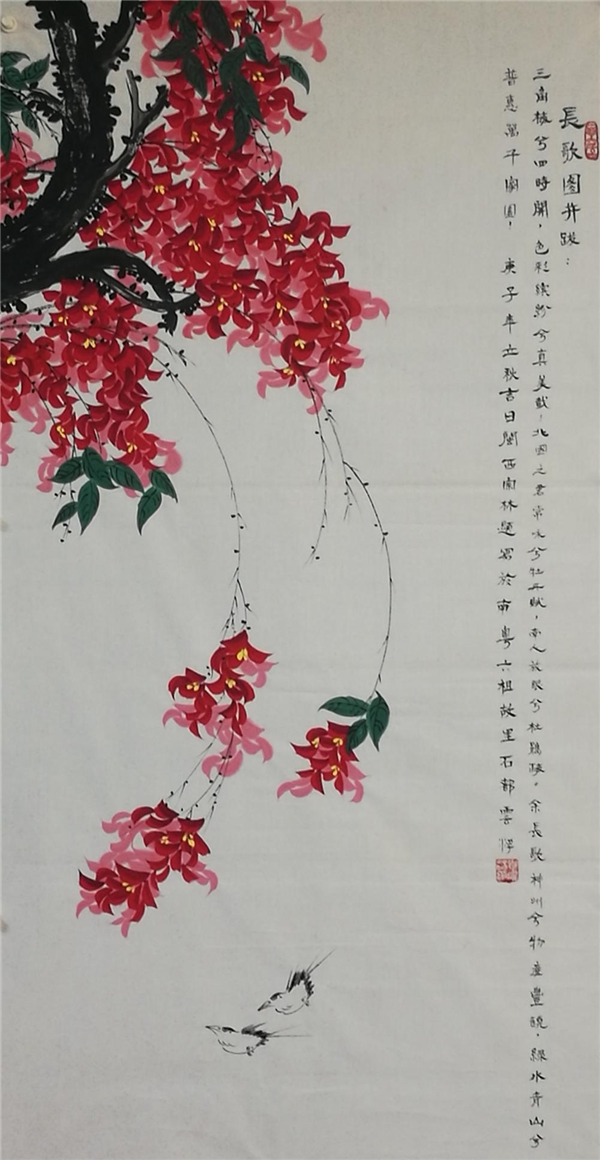 長歌图并跋：
三角梅兮四時開，色彩缤紛兮真美哉，北國之君常咏兮牡丹赋，南人放眼兮杜鵑。余長歌神州兮物産豐饒，綠水青山兮
普惠萬千家園，庚子年立秋吉日閩西南林題寫於南粤六祖故里石都雲浮